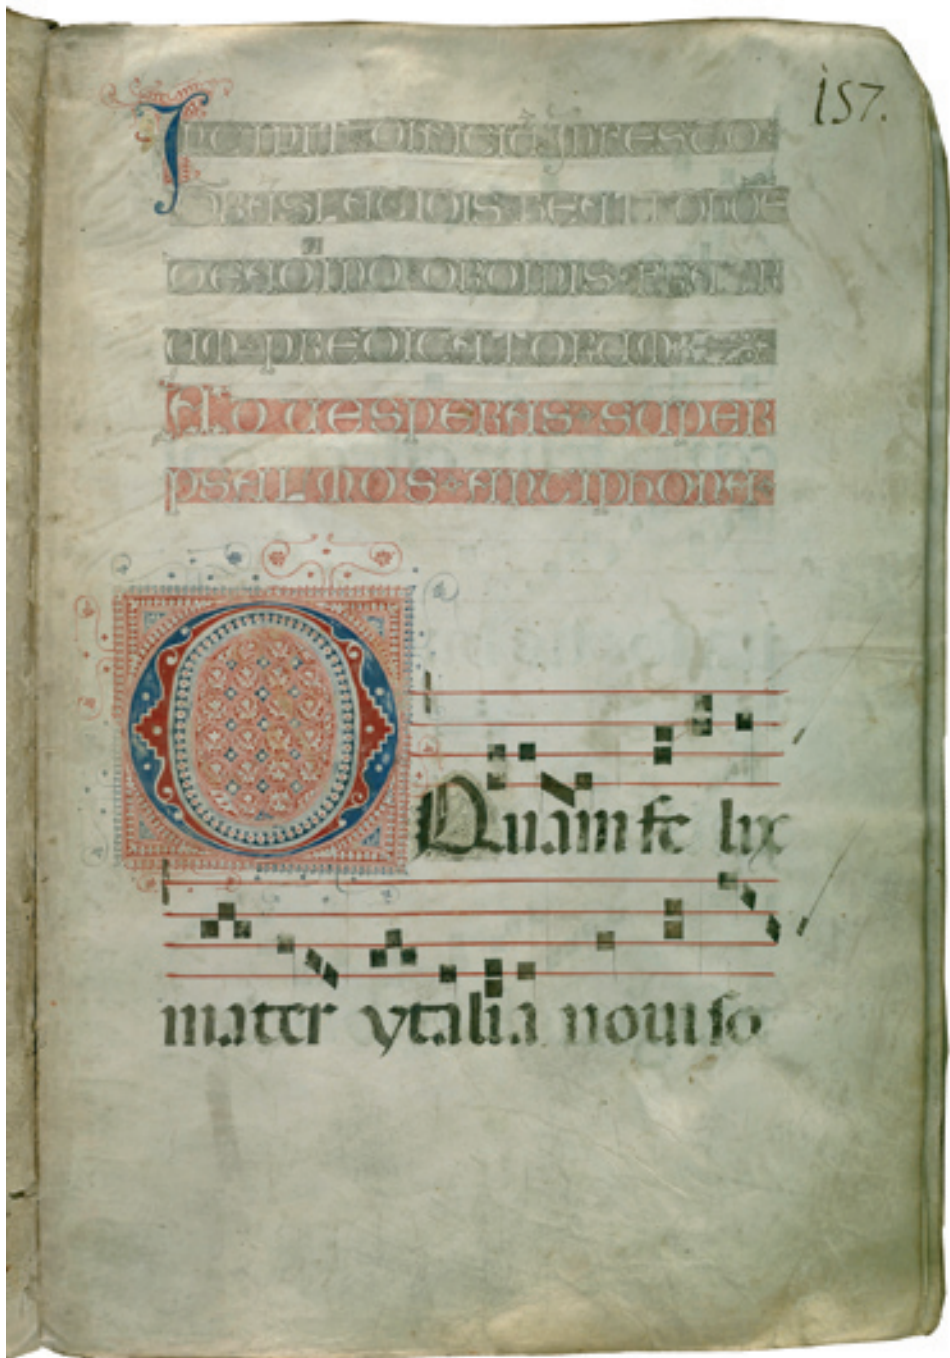 157.
INCIPIT OFFICIU IN FESTO
BEATI
ORDINIS FRATR
UM PREDICATORUM
AD UESPERAS SUPER
PSALMOS ANTIPHONA
O Quam fe lix
mater ytalia noui so